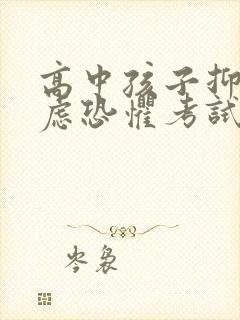 高中孩子抑
虑恐惧考试
岑袅